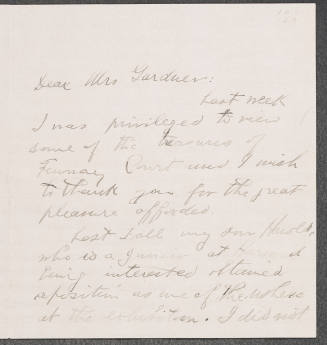 Dear Mrs Gardner:
Last week
I was privileged to view
some of the treasures of
Fenway Court and I wish
to thank you for the great
pleasure afforded.
Last fall my son Harold,
who is a Junior at
being interested obtained
a position as one of the ushers
at the exhibition. I did not